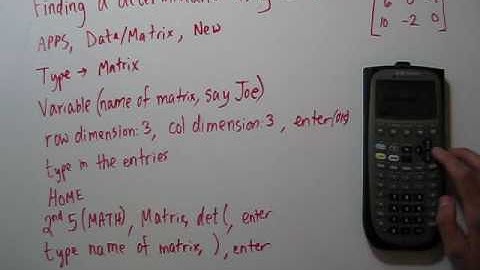 Finding a determinant
APPS, Data/Matrix, New
Type → Matrix
Variable (name of matrix, say Joe)
row dimension: 3, col dimension: 3, enter
type in the entries
HOME
2nd 5 (MATH), Matrix, det(, enter
type name of matrix, ), enter
10 -2 0